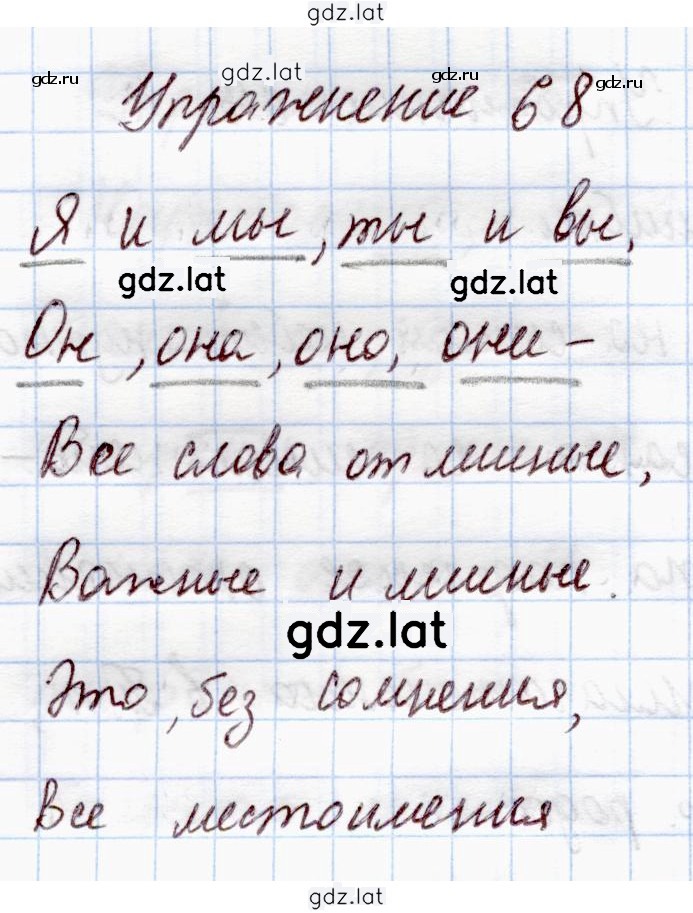 gdz.lat
gdz.ru gdz.lat gdz.ru
Упражнение 68
Я и мы, ты и вы,
gdz.lat gdz.lat
Он, она, оно, они –
Все слова отличные,
Важные и личные.
gdz.lat
Это, без сомнения,
Все местоимения
gdz.lat